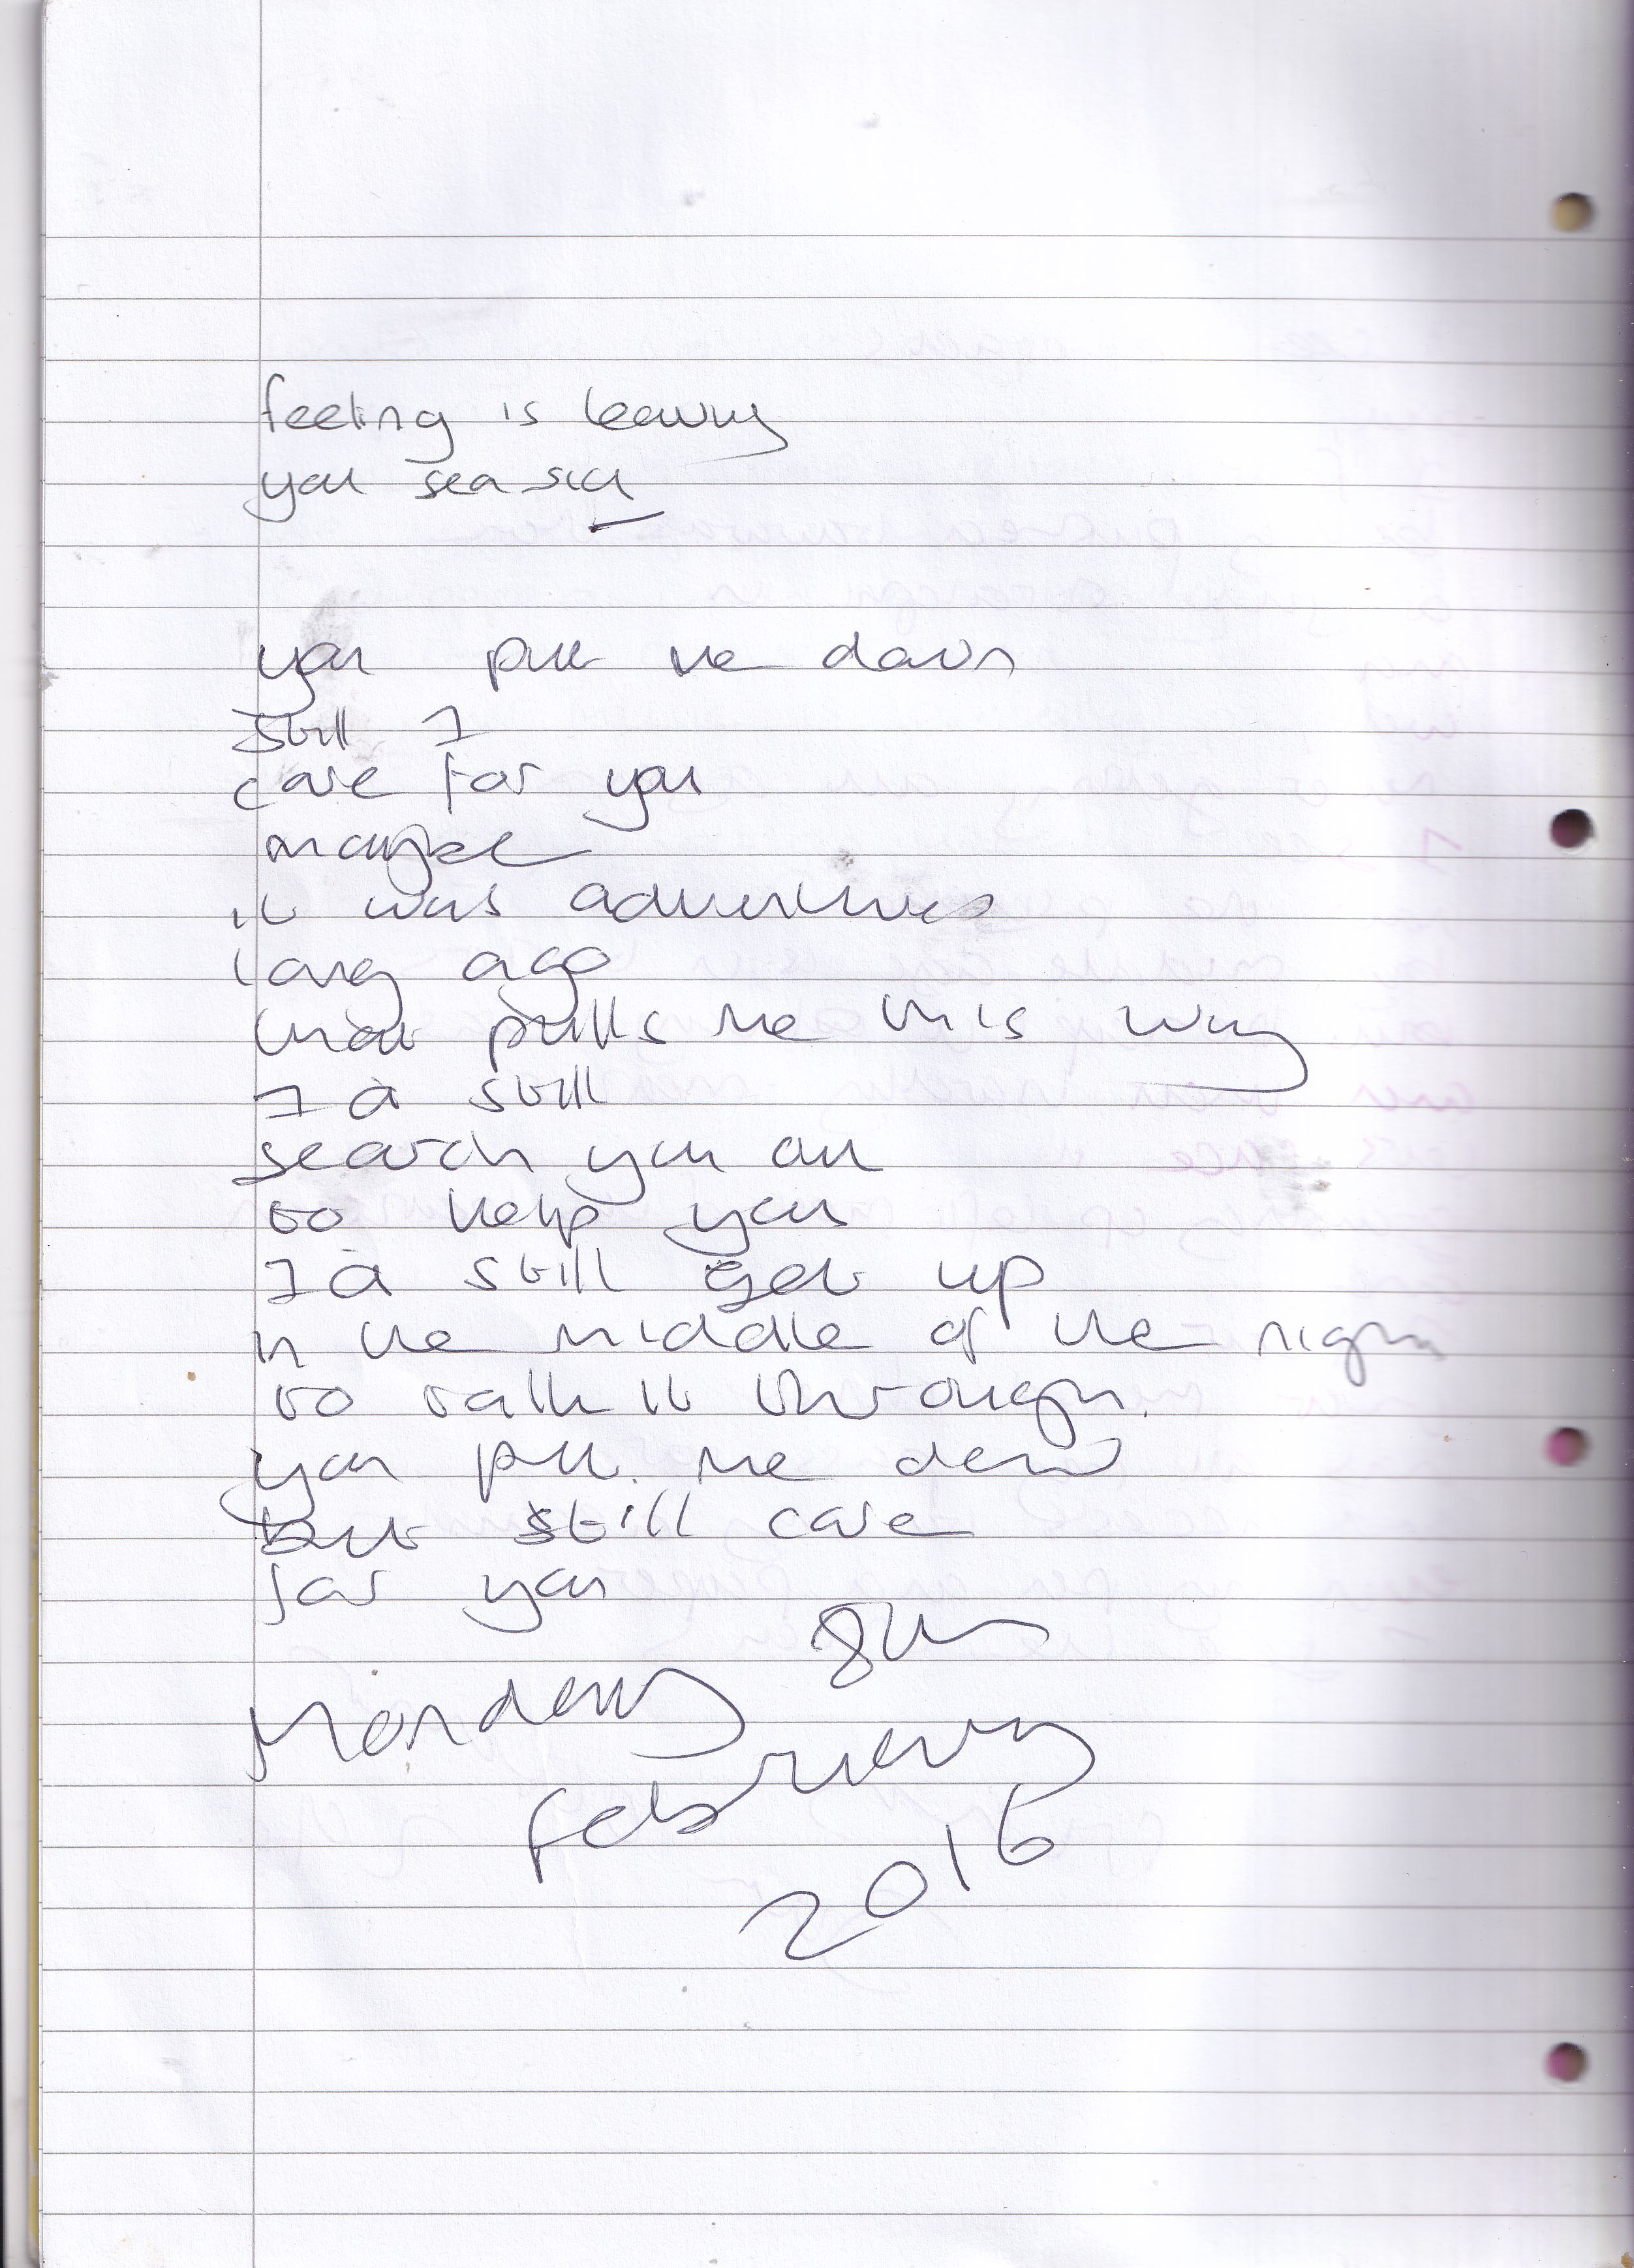 feeling is leaving
you sea sick
you pull me down
still I
care for you
maybe
it was adventures
long ago
that pulls me this way
I d still
search you out
to help you
I d still get up
in the middle of the night
to talk it through.
you pull me down
but still care
for you
Monday 8th
February
2016